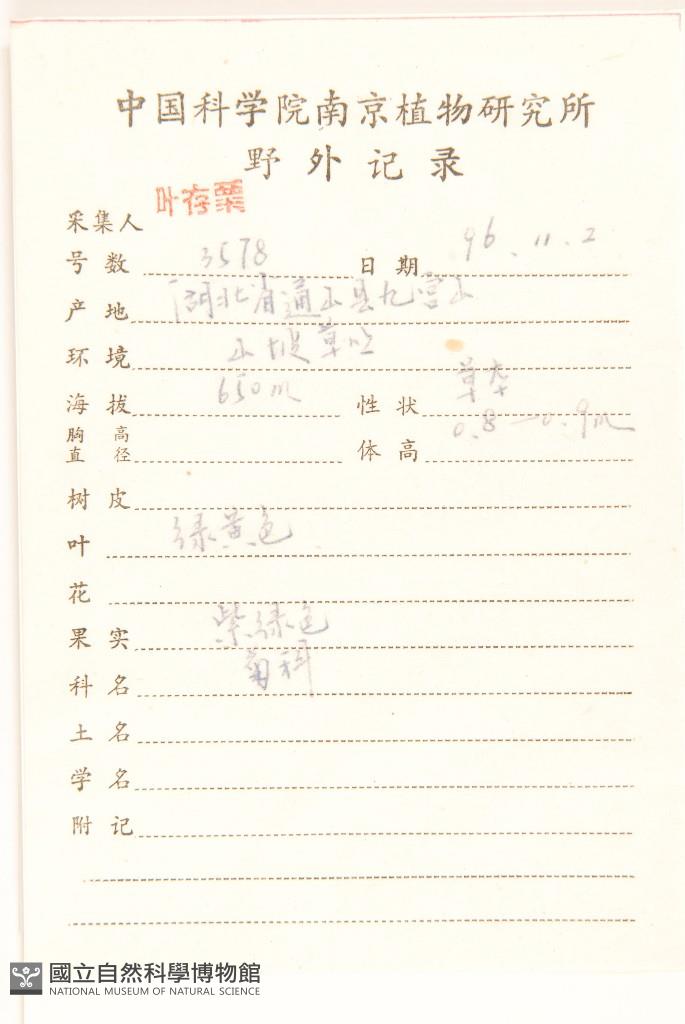 中国科学院南京植物研究所
野外记录
采集人 叶存粟
号数 3578 日期 96.11.2
产地 湖北省通山县九宫山
环境 山坡草丛
海拔 650m 性状 草本
胸高直径 体高 0.8—0.9m
树皮
叶 绿黄色
花
果实 紫绿色
科名 菊科
土名
学名
附记
國立自然科學博物館
NATIONAL MUSEUM OF NATURAL SCIENCE